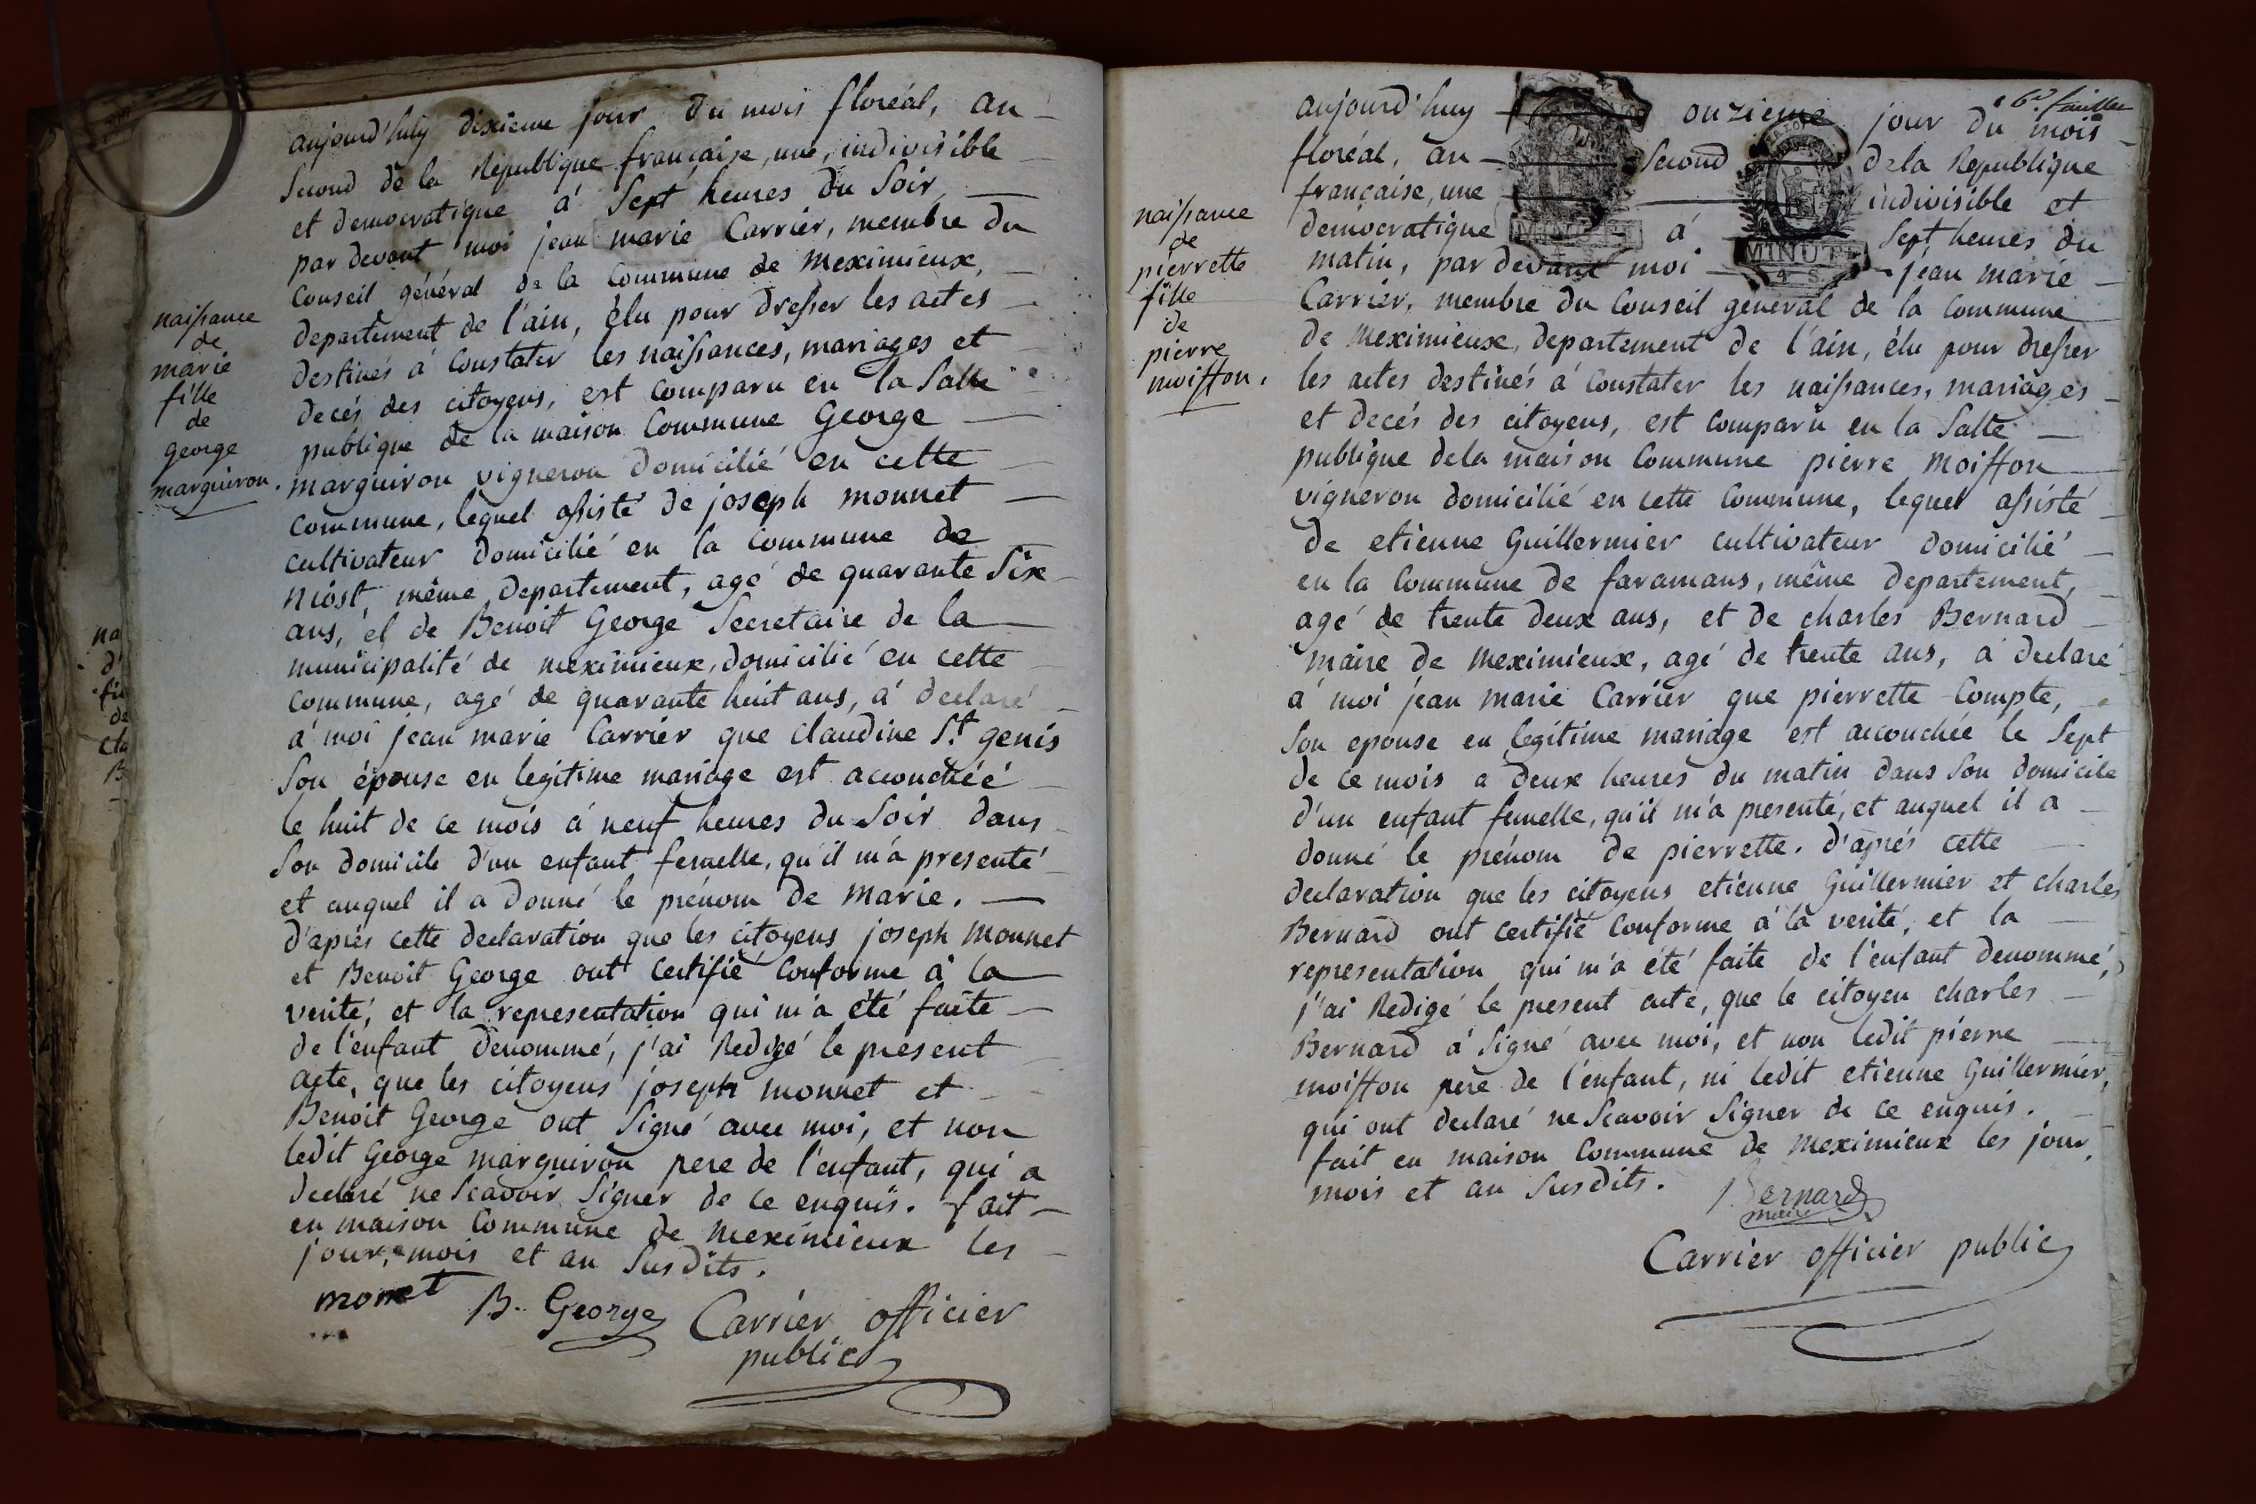 aujourd'huy dixieme jour du mois floréal, an
Second de la Republique française, une, indivisible
et democratique à Sept heures du Soir
par devant moi jean marie Carrier, membre du
Conseil général de la Commune de meximieux,
departement de l'ain, élu pour dresser les actes
destinés à Constater les naissances, mariages et
decés des citoyens, est comparu en la Salle
publique de la maison Commune George
marguiron vigneron domicilié en cette
Commune, lequel assisté de joseph monnet
cultivateur domicilié en la Commune de
niost, même departement, agé de quarante Six
ans, et de Benoit George Secretaire de la
municipalité de meximieux, domicilié en cette
Commune, agé de quarante huit ans, à declaré
à moi jean marie Carrier que Claudine St genis
Son épouse en legitime mariage est accouchéé
le huit de ce mois à neuf heures du Soir dans
Son domicile d'un enfant femelle, qu'il m'a presenté
et auquel il a donné le prénom de marie.
d'après cette declaration que les citoyens joseph monnet
et Benoit George ont certifié Conforme à la
verité, et la representation qui m'a été faite
de l'enfant denommé, j'ai Redigé le present
acte, que les citoyens joseph monnet et
Benoit George ont Signé avec moi, et non
ledit George marguiron pere de l'enfant, qui a
declaré ne Scavoir Signer de ce enquis. fait
en maison Commune de meximieux les
jour, mois et an Susdits.
monet B. George Carrier officier
public
naissance
de
marie
fille
de
george
marguiron.
na
d'
fi
de
cla
B
6e feuillet
aujourd'huy onzieme jour du mois
floréal, an Second de la Republique
française, une indivisible et
democratique à Sept heures du
matin, par devant moi jean marie
Carrier, membre du Conseil general de la Commune
de meximieux, departement de l'ain, élu pour dresser
les actes destinés à Constater les naissances, mariages
et decés des citoyens, est comparu en la Salle
publique de la maison Commune pierre moiffon
vigneron domicilié en cette Commune, lequel assisté
de etienne Guillermier cultivateur domicilié
en la Commune de faramans, même departement,
agé de trente deux ans, et de charles Bernard
maire de meximieux, agé de trente ans, a declaré
à moi jean marie Carrier que pierrette Compte,
Son epouse en legitime mariage est accouchée le Sept
de ce mois a deux heures du matin dans Son domicile
d'un enfant femelle, qu'il m'a presenté, et auquel il a
donné le prénom de pierrette. d'après cette
declaration que les citoyens etienne Guillermier et charles
Bernard ont certifié Conforme à la verité, et la
representation qui m'a été faite de l'enfant denommé,
j'ai Redigé le present acte, que le citoyen charles
Bernard à Signé avec moi, et non ledit pierre
moiffon pere de l'enfant, ni ledit etienne Guillermier,
qui ont declaré ne Scavoir Signer de ce enquis.
fait en maison Commune de meximieux les jour,
mois et an Susdits.
Bernard
maire
Carrier officier public
naissance
de
pierrette
fille
de
pierre
moiffon.
MINUTE
MINUTE
4 S